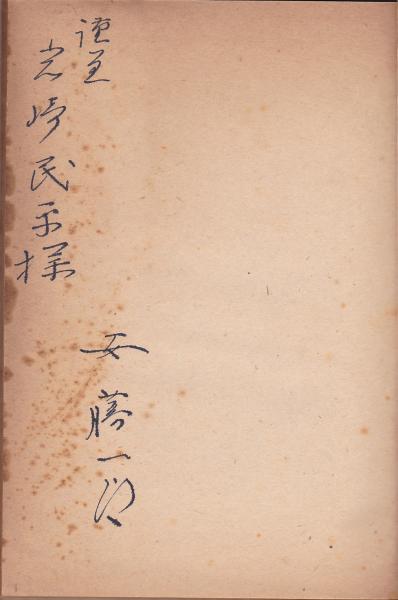 謹呈
岩崎民平様
安藤一郎